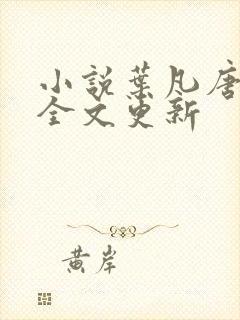 小說葉凡唐
全文更新
黃岸